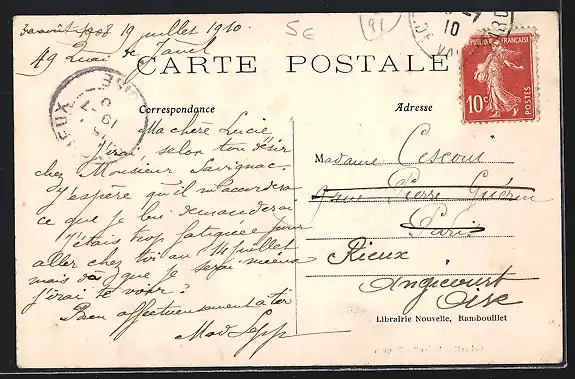 19 juillet 1910
5e
91
49 Quai de Javel
CARTE POSTALE
REPUBLIQUE FRANÇAISE
10c
POSTES
Correspondance
Adresse
Ma chère Lucie
J'irai selon ton désir
chez Monsieur Savignac.
J'espère qu'il m'accordera
ce que je lui demanderai
J'étais trop fatiguée pour
aller chez toi au 14 juillet
mais dès que je serai mieux
j'irai te voir.
Bien affectueusement à toi
Mad
Madame Cescour
rue Pierre Guérin
Paris
Rieux
Angicourt
Oise
Librairie Nouvelle, Rambouillet